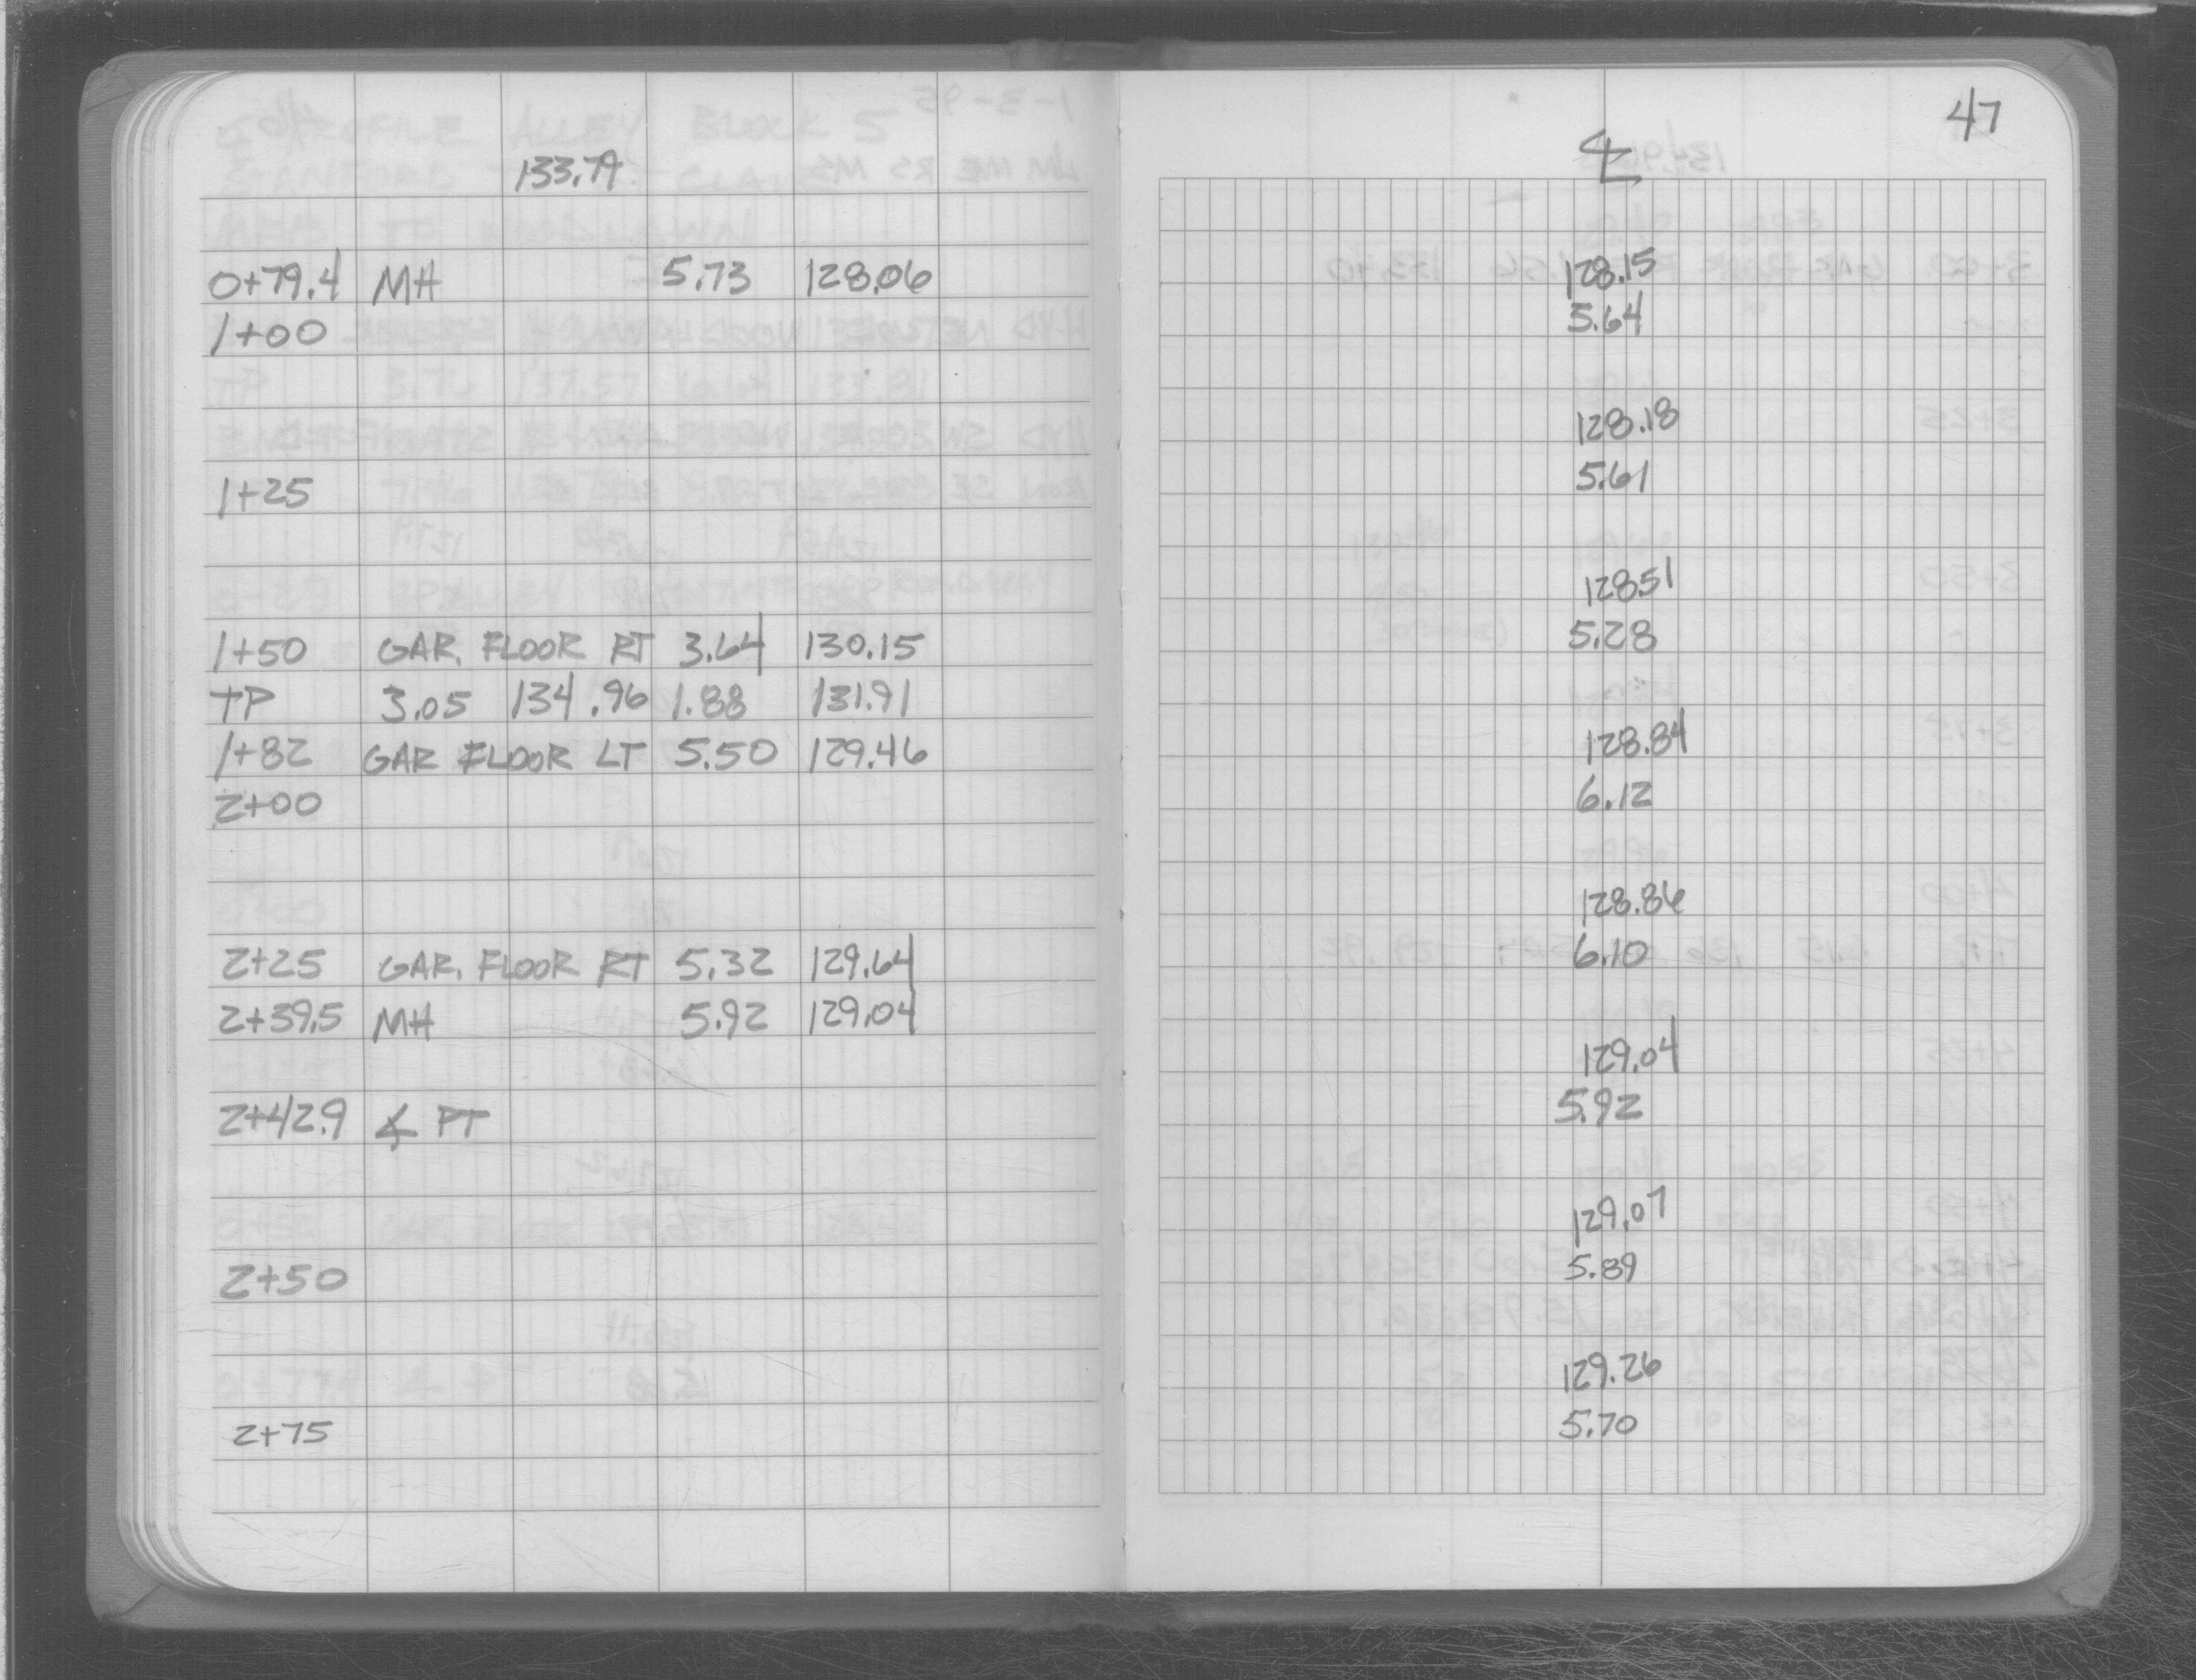 133.79
0+79.4 MH 5.73 128.06
1+00
1+25
1+50 GAR. FLOOR RT 3.64 130.15
TP 3.05 134.96 1.88 131.91
1+82 GAR FLOOR LT 5.50 129.46
2+00
2+25 GAR. FLOOR RT 5.32 129.64
2+39.5 MH 5.92 129.04
2+42.9 ∡ PT
2+50
2+75
47
℄
128.15
5.64
128.18
5.61
128.51
5.28
128.84
6.12
128.86
6.10
129.04
5.92
129.07
5.89
129.26
5.70